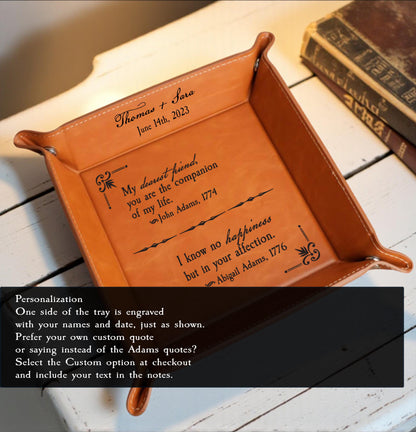 Thomas + Sara
June 14th, 2023
My dearest friend,
you are the companion
of my life.
John Adams, 1774
I know no happiness
but in your affection.
Abigail Adams, 1776
Personalization
One side of the tray is engraved
with your names and date, just as shown.
Prefer your own custom quote
or saying instead of the Adams quotes?
Select the Custom option at checkout
and include your text in the notes.